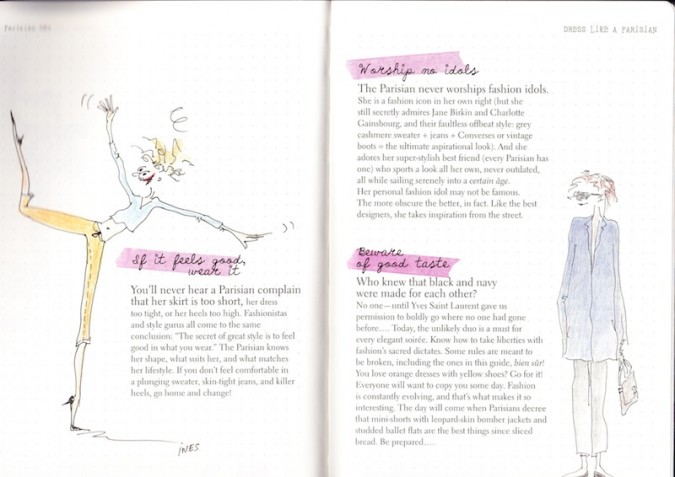 If it feels good,
wear it
You'll never hear a Parisian complain
that her skirt is too short, her dress
too tight, or her heels too high. Fashionistas
and style gurus all come to the same
conclusion: "The secret of great style is to feel
good in what you wear." The Parisian knows
her shape, what suits her, and what matches
her lifestyle. If you don't feel comfortable in
a plunging sweater, skin-tight jeans, and killer
heels, go home and change!
INES
DRESS LIKE A PARISIAN
Worship no idols
The Parisian never worships fashion idols.
She is a fashion icon in her own right (but she
still secretly admires Jane Birkin and Charlotte
Gainsbourg, and their faultless offbeat style: grey
cashmere sweater + jeans + Converses or vintage
boots = the ultimate aspirational look). And she
adores her super-stylish best friend (every Parisian has
one) who sports a look all her own, never outdated,
all while sailing serenely into a certain âge.
Her personal fashion idol may not be famous.
The more obscure the better, in fact. Like the best
designers, she takes inspiration from the street.
Beware
of good taste
Who knew that black and navy
were made for each other?
No one—until Yves Saint Laurent gave us
permission to boldly go where no one had gone
before.... Today, the unlikely duo is a must for
every elegant soirée. Know how to take liberties with
fashion's sacred dictates. Some rules are meant to
be broken, including the ones in this guide, bien sûr!
You love orange dresses with yellow shoes? Go for it!
Everyone will want to copy you some day. Fashion
is constantly evolving, and that's what makes it so
interesting. The day will come when Parisians decree
that mini-shorts with leopard-skin bomber jackets and
studded ballet flats are the best things since sliced
bread. Be prepared....